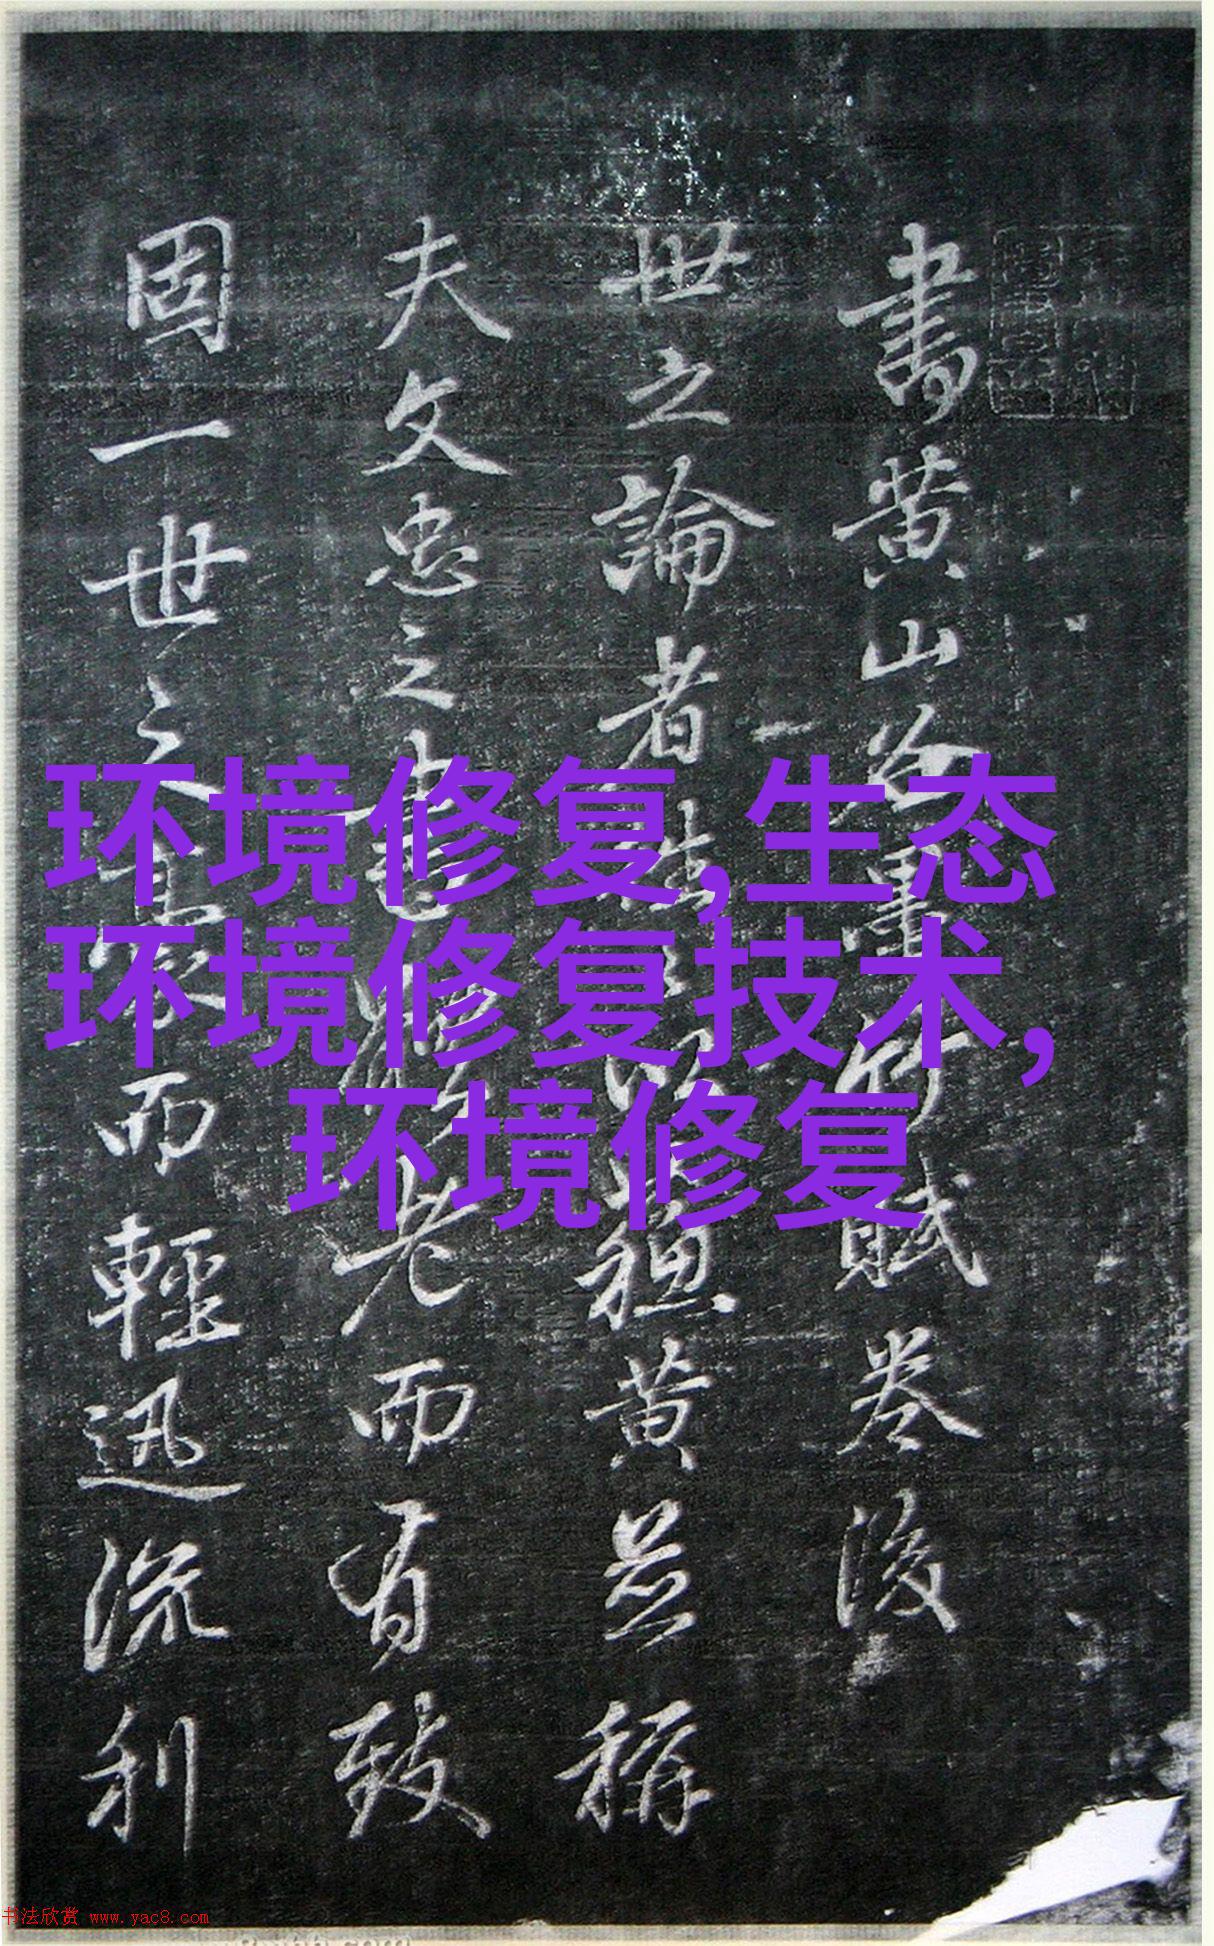 書黄山谷墨竹賦卷後
世之論者黄並稱
夫文忠之書老而有致
固一世之豪而輕迅流利
环境修复,生态
环境修复技术,
环境修复
书法欣赏 www.yac8.com